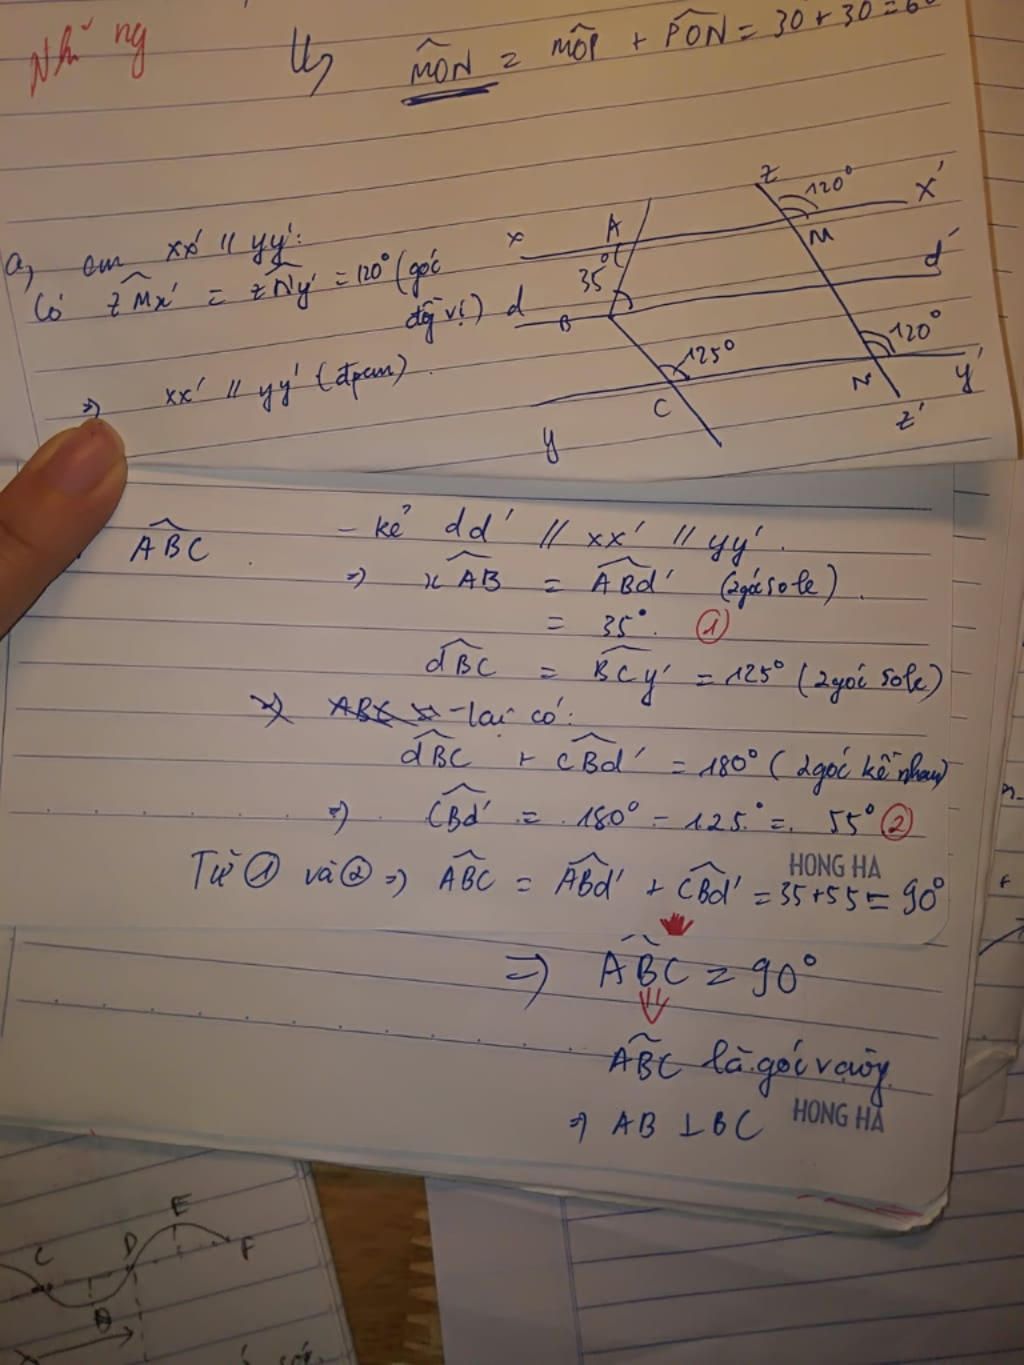 Những
MON = MOP + PON = 30 + 30 = 60
a, cm xx' // yy':
Có zMx' = zNy' = 120° (góc
đg vị)
=> xx' // yy' (đpcm).
z
120°
x'
x
A
M
35°
d'
d
B
125°
120°
C
N
y'
y
z'
ABC
- kẻ dd' // xx' // yy'.
=> xAB = ABd' (2 góc sole).
= 35°. ①
dBC = BCy' = 125° (2 góc sole)
=> ABC - lại có:
dBC + CBd' = 180° (2 góc kề nhau)
=> CBd' = 180° - 125° = 55° ②
HONG HA
Từ ① và ② => ABC = ABd' + CBd' = 35 + 55 = 90°
=> ABC = 90°
ABC là góc vuông
=> AB ⊥ BC
HONG HA
E
C
D
F
B